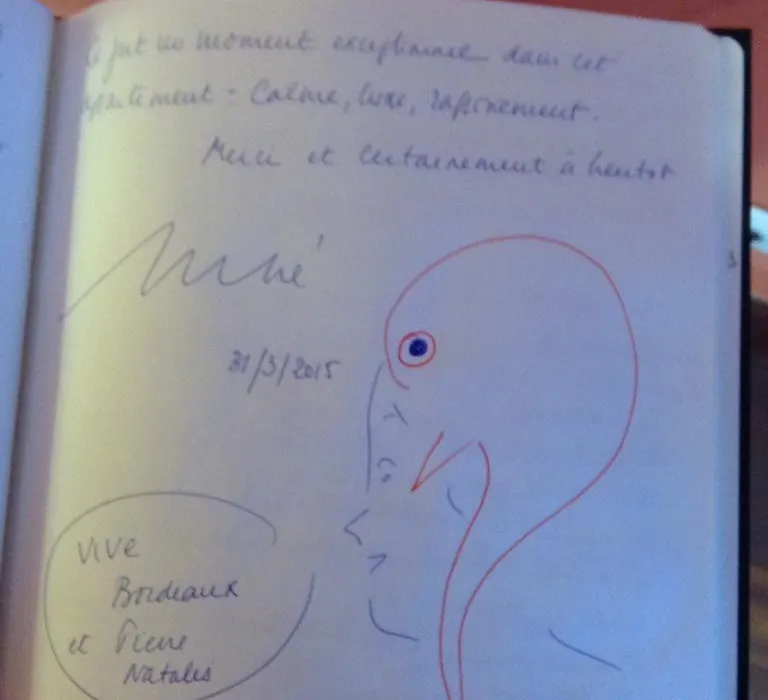 Ce fut un moment exceptionnel dans cet
appartement : Calme, luxe, raffinement.
Merci et certainement à bientôt
31/3/2015
Vive
Bordeaux
et Pierre
Natales